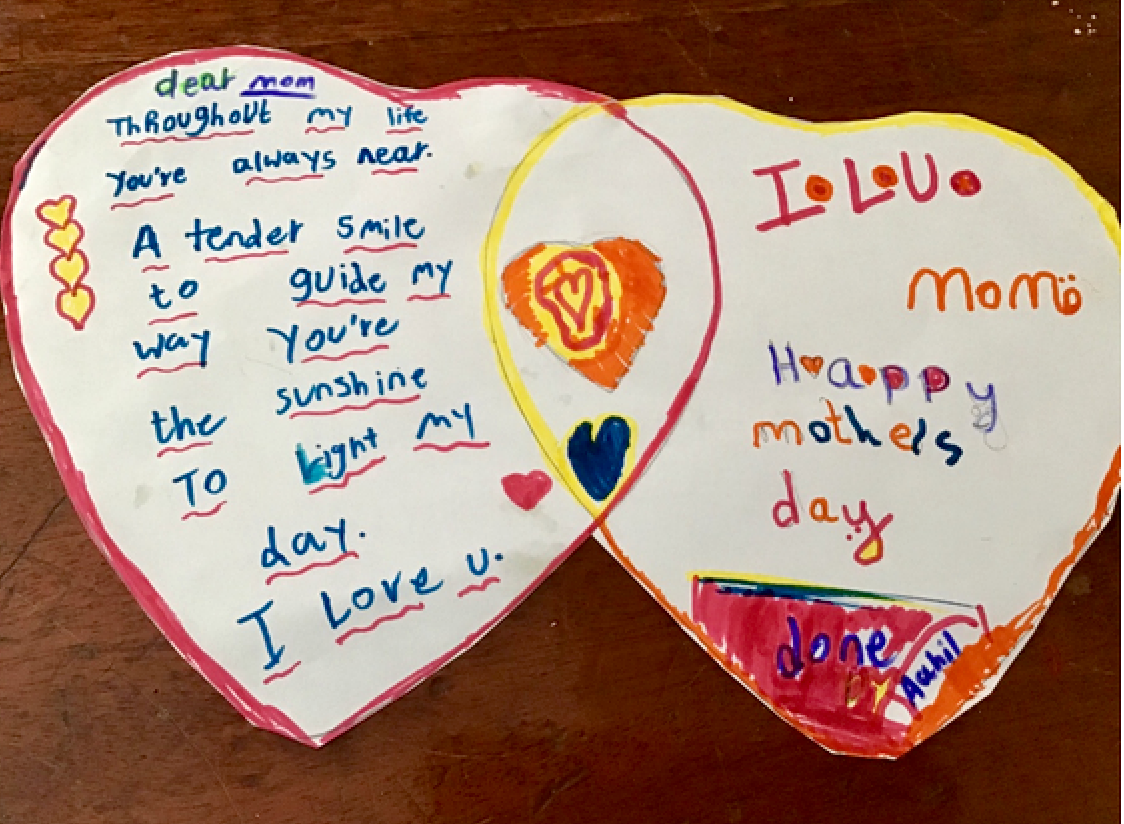 dear mom
Throughout my life
You're always near.
A tender smile
to guide my
way You're
the sunshine
To Light my
day.
I Love u.
I.L.U.
Mom
Happy
mothers
day
done
by
Aahil